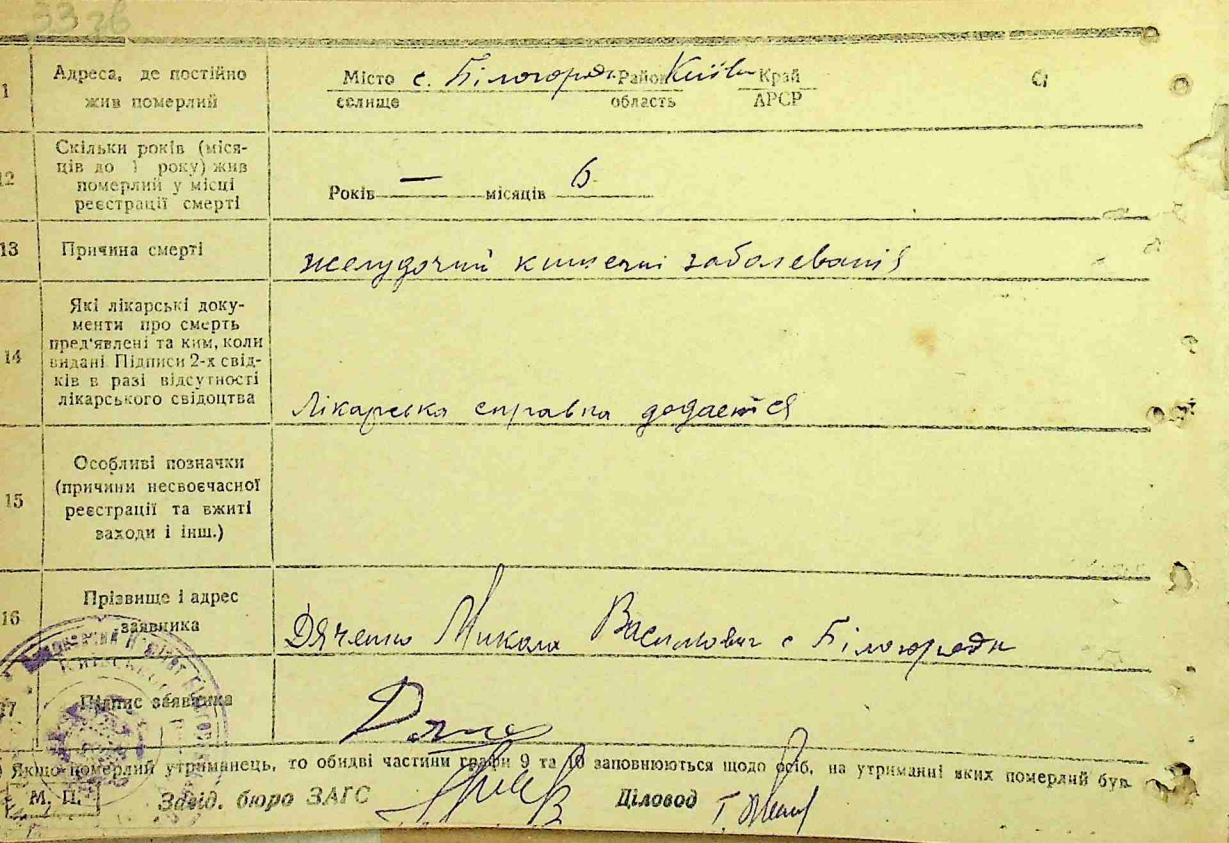 33 зв
1
Адреса, де постійно
жив померлий
Місто с. Білогородк Район Київ Край
селище область АРСР
12
Скільки років (міся-
ців до 1 року) жив
померлий у місці
реєстрації смерті
Років — місяців 6
13
Причина смерті
желудочий кишечні заболеванія
14
Які лікарські доку-
менти про смерть
пред'явлені та ким, коли
видані. Підписи 2-х свід-
ків в разі відсутності
лікарського свідоцтва
Лікарска справка додается
15
Особливі позначки
(причини несвоєчасної
реєстрації та вжиті
заходи і інш.)
16
Прізвище і адрес
заявника
Дяченко Микола Василович с Білогородк
17
Підпис заявника
Якщо померлий утриманець, то обидві частини графи 9 та 10 заповнюються щодо осіб, на утриманні яких померлий був.
М. П.
Завід. бюро ЗАГС Діловод